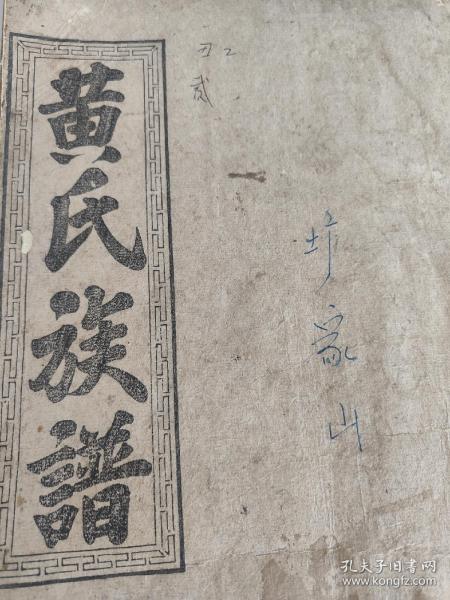 黄氏族譜
丑乙
贰
家山
孔夫子旧书网
www.kongfz.com